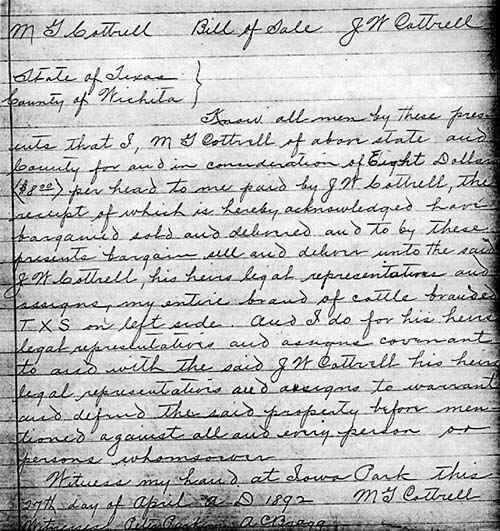 M G Cottrell Bill of Sale J W Cottrell
State of Texas }
County of Wichita }
Know all men by these pres
ents that I, M G Cottrell of above state and
County for and in consideration of Eight Dollars
($8.00) per head to me paid by J W Cottrell, the
receipt of which is hereby acknowledged have
bargained sold and delivered and to by these
presents bargain sell and deliver unto the said
J W Cottrell, his heirs legal representatives and
assigns, my entire brand of cattle branded
T X S on left side. And I do for his heirs
legal representatives and assigns covenant
to and with the said J W Cottrell his heirs
legal representatives and assigns to warrant
and defend the said property before men
tioned against all and every person or
persons whomsoever
Witness my hand at Iowa Park this
27th day of April A D 1892 M G Cottrell
Witnesses A C Bragg